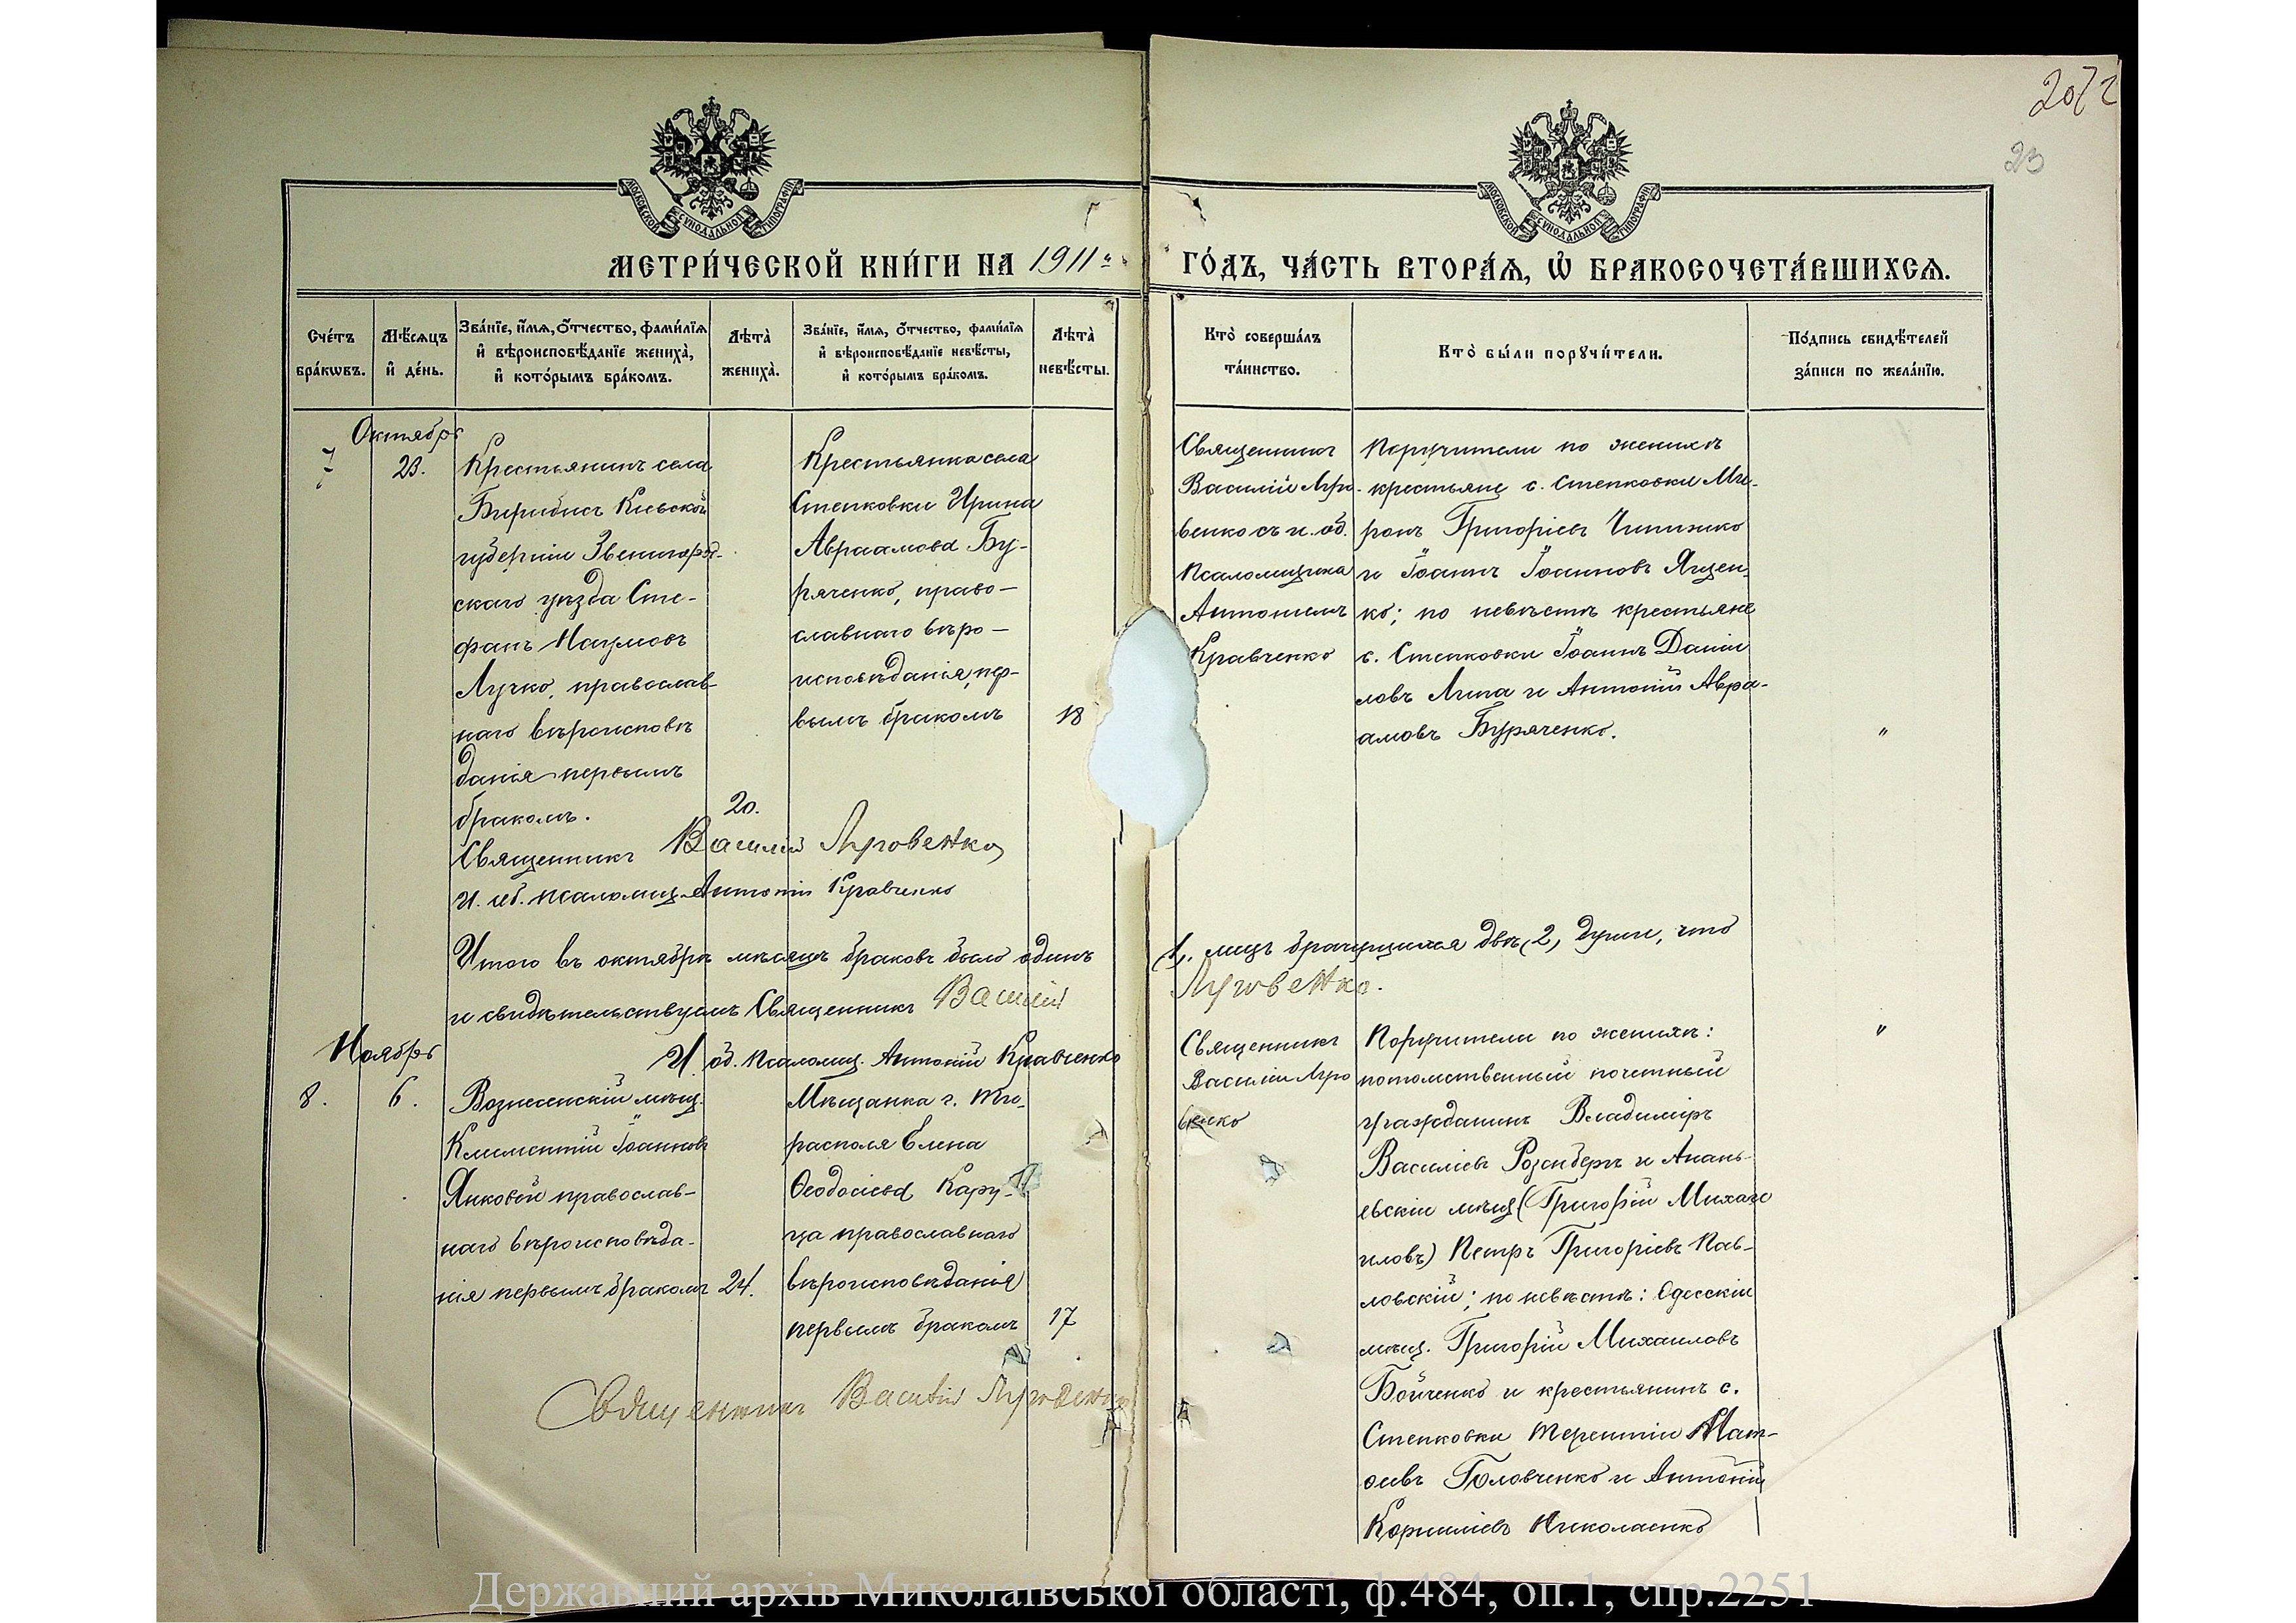 207 г
23
МОСКОВСКОЙ СѴНОДАЛЬНОЙ ТИПОГРАФІИ
МОСКОВСКОЙ СѴНОДАЛЬНОЙ ТИПОГРАФІИ
МЕТРИ́ЧЕСКОЙ КНИ́ГИ НА 1911й
ГО́ДЪ, ЧА́СТЬ ВТОРА́Ѧ, Ѽ БРАКОСОЧЕТА́ВШИХСѦ.
Сче́тъ бра́кѡвъ.
Мѣ́сѧцъ и҆ де́нь.
Зва́нїе, и҆́мѧ, ѻ҆́тчество, фами́лїѧ и҆ вѣроисповѣ́данїе жениха̀, и҆ кото́рымъ бра́комъ.
Лѣта̀ жениха̀.
Зва́нїе, и҆́мѧ, ѻ҆́тчество, фами́лїѧ и҆ вѣроисповѣ́данїе невѣ́сты, и҆ кото́рымъ бра́комъ.
Лѣта̀ невѣ́сты.
Кто̀ соверша́лъ та́инство.
Кто̀ бы́ли порꙋчи́тели.
По́дпись свидѣ́телей за́писи по жела́нїю.
Октябрь
7
23.
Крестьянинъ села
Киевской
губерніи Звенигород-
скаго уѣзда Сте-
фанъ Наумовъ
Лучко, православ-
наго вѣроисповѣ
данія первымъ
бракомъ.
20.
Крестьянка села
Степковки Ирина
Авраамова Бу-
ряченко, право-
славнаго вѣро-
исповѣданія, пер-
вымъ бракомъ
18
Священникъ
Василій Яро-
венко съ и. об.
Псаломщика
Антоніемъ
Кравченко
Поручители по женихѣ
крестьяне с. Степковки Ми-
ронъ Григоріевъ
и Іоаннъ Іоанновъ Яцен-
ко; по невѣстѣ крестьяне
с. Степковки Іоаннъ Даніи
ловъ Липа и Антоній Авра-
амовъ Буряченко.
"
Священникъ Василій Яровенко
И. об. псаломщ. Антоній Кравченко
Итого въ октябрѣ мѣсяцѣ браковъ было одинъ
(1), лицъ брачущихся двѣ (2) души, что
и свидѣтельствуемъ Священникъ Василій
Яровенко.
И об. псаломщ. Антоній Кравченко
Ноябрь
8.
6.
Вознесенскій мѣщ.
Климентій Іоанновъ
Янковой православ-
наго вѣроисповѣда-
нія первымъ бракомъ
24.
Мѣщанка г. Ти-
располя Елена
Ѳеодосіева Кару-
ца православнаго
вѣроисповѣданія
первымъ бракомъ
17
Священникъ
Василій Яро
венко
Поручители по женихѣ:
потомственный почетный
гражданинъ Владиміръ
Василіевъ Розенбергъ и Анань-
евскій мѣщ (Григорій Михаи
иловъ) Петръ Григоріевъ Пав-
ловскій; по невѣстѣ: Одесскій
мѣщ. Григорій Михаиловъ
Бойченко и крестьянинъ с.
Степковки Терентій Мат-
ѳіевъ Головченко и Антоній
Корниліевъ Николаенко
"
Священникъ Василій Яровенко
Державний архів Миколаївської області, ф.484, оп.1, спр.2251